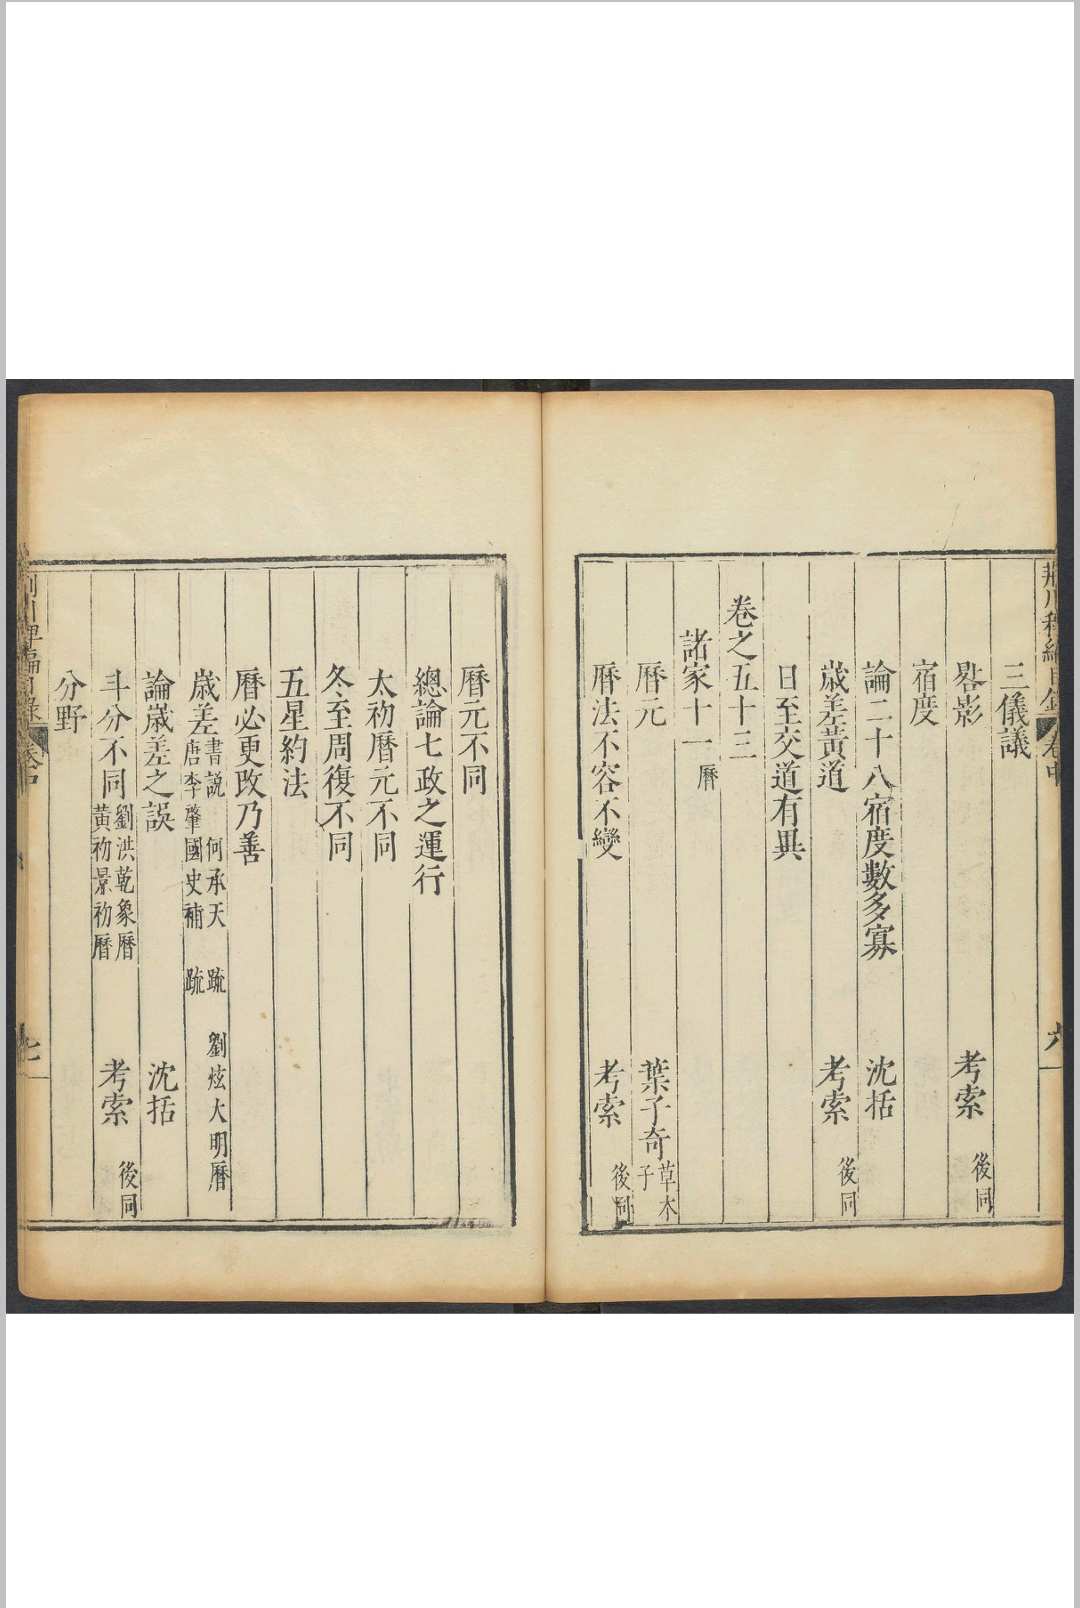 三儀議
晷影 考索 後同
宿度
論二十八宿度數多寡 沈括
歲差黃道 考索 後同
日至交道有異
卷之五十三
諸家十一 曆
曆元 葉子奇 草木子
曆法不容不變 考索 後同
曆元不同
總論七政之運行
太初曆元不同
冬至周復不同
五星約法
曆必更改乃善
歲差 書說 何承天 䟽 劉炫大明曆 唐李肇國史補 䟽
論歲差之誤 沈括
斗分不同 劉洪乾象曆 黃初景初曆 考索 後同
分野
荆川稗編目錄 卷中 七